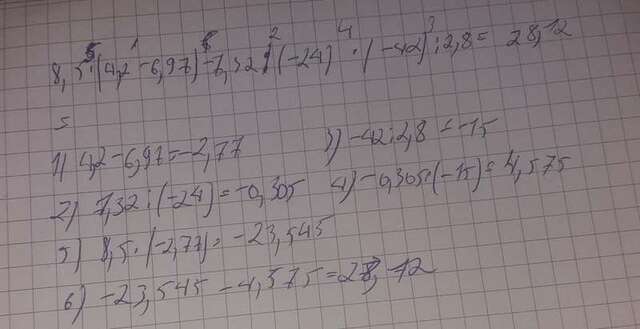 5 1 6 2 4 3
8,5·(4,2-6,97)-7,32:(-24)·(-42):2,8= 28,12
=
1) 4,2-6,97=-2,77 3) -42:2,8=-15
2) 7,32:(-24)=-0,305 4) -0,305·(-15)=4,575
5) 8,5·(-2,77)=-23,545
6) -23,545-4,575=28,12